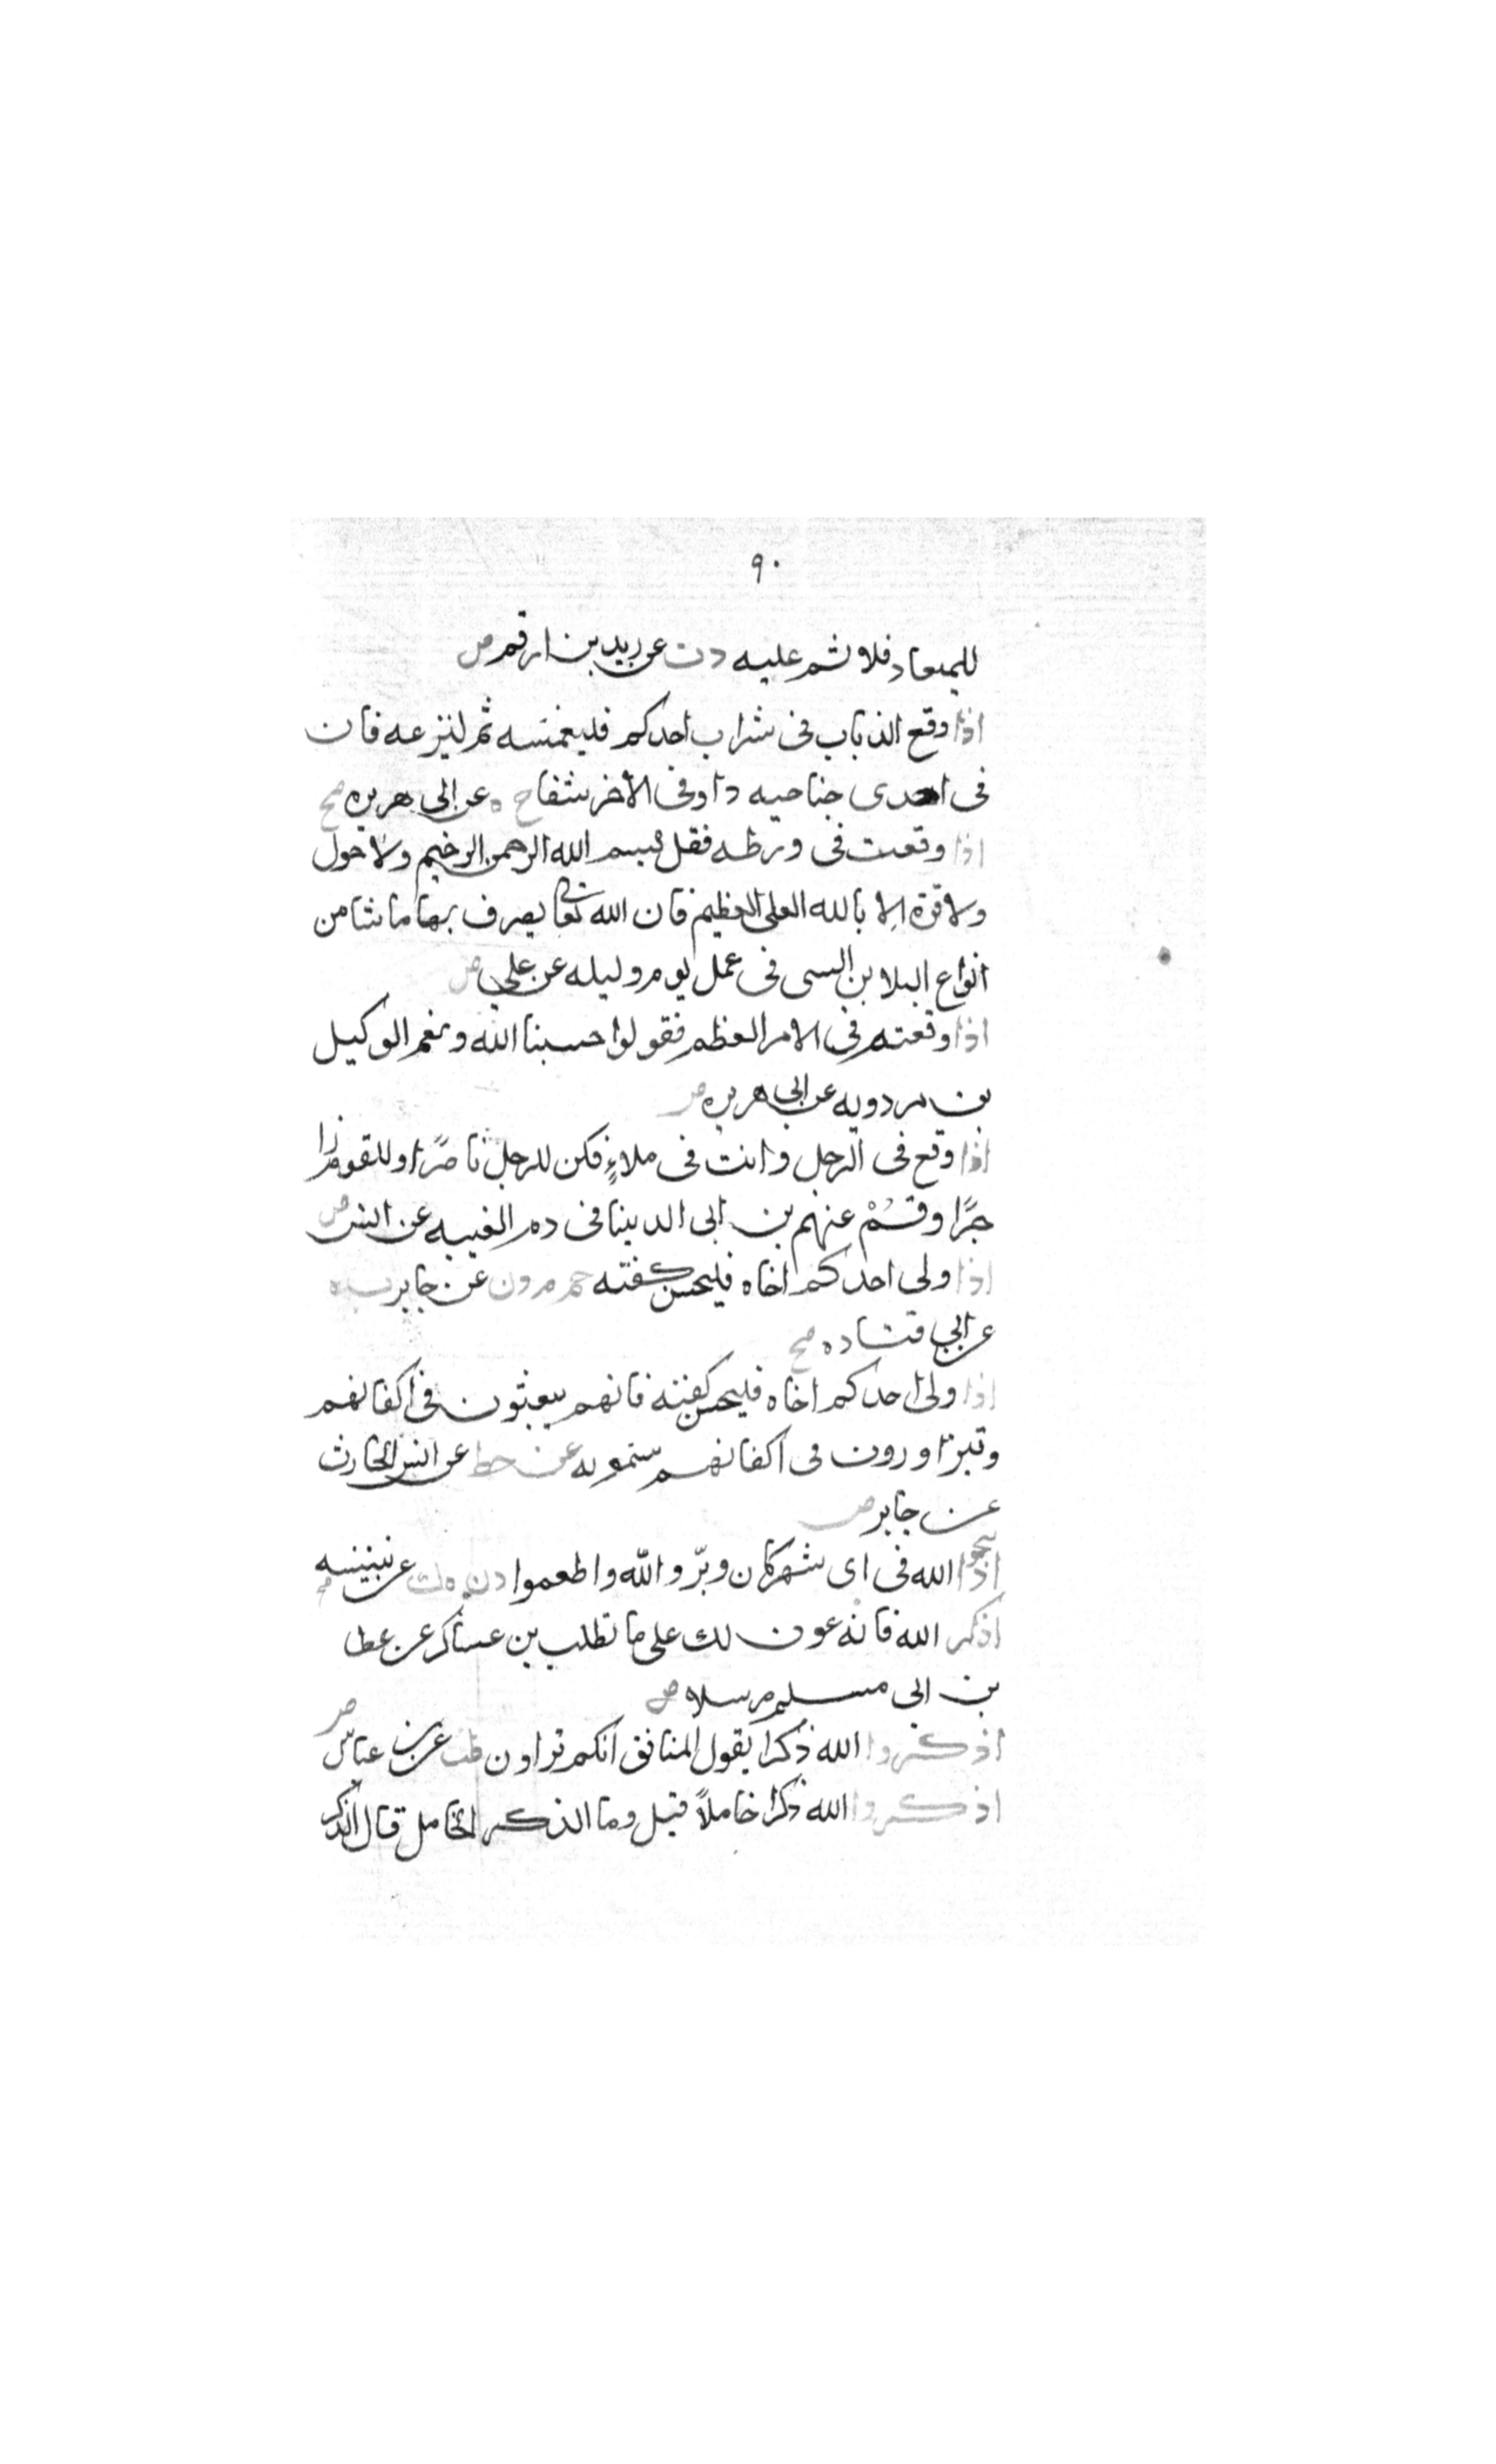 ٩٠
للميعاد فلا اثم عليه دت عن زيد بن ارقم ض
اذا وقع الذباب فى شراب احدكم فليغمسه ثم لينزعه فان
فى احدى جناحيه دا وفى الاخر شفا خ ه عن ابى هريره صح
اذا وقعت فى ورطه فقل بسم الله الرحمن الرحيم ولا حول
ولا قوة الا بالله العلى العظيم فان الله تعالى يصرف بها ما شا من
انواع البلا بن السنى فى عمل يوم وليله عن على ض
اذا وقعتم فى الامر العظيم فقولوا حسبنا الله ونعم الوكيل
بن مردويه عن ابى هريره ض
اذا وقع فى الرجل وانت فى ملاءٍ فكن للرجل ناصرًا وللقوم زا
جرًا وقُمْ عنهم بن ابى الدينا فى ذم الغيبه عن انس ض
اذا ولى احدكم اخاه فليحسن كفنه حم م د ن عن جابر ت ه
عن ابى قتاده صح
اذا ولى احدكم اخاه فليحسن كفنه فانهم يبعثون فى اكفانهم
ويتزاورون فى اكفانهم سمويه عق خط عن انس الحارث
عن جابر ض
اذبحوا الله فى اى شهر كان وبرّوا الله واطعموا د ن ه ك عن نبيشه صح
اذكر الله فانه عون لك على ما تطلب بن عساكر عن عطا
بن ابى مسلم مرسلا ض
اذكروا الله ذكرا يقول المنافق انكم تراون طب عن بن عباس ض
اذكروا الله ذكرا خاملاً قيل وما الذكر الخامل قال الذكر